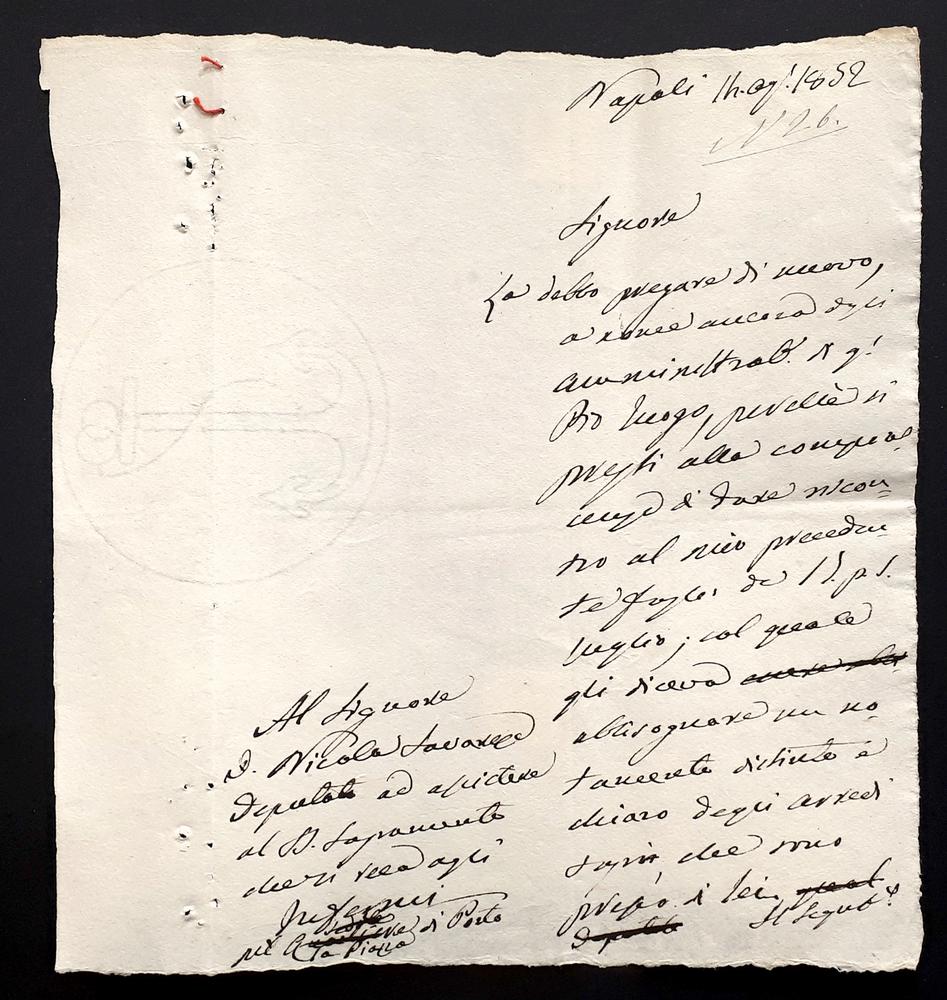 Napoli 14. ag.t 1852
N 26.
Signore
La debbo pregare di nuovo,
a nome ancora degli
amministrat.i di q.t
Pio luogo, perchè si
presti alla compia=
cenza di dare riscon=
tro al mio preceden=
te foglio de' 15. p. p.
luglio; col quale
gli diceva
abbisognare un no=
tamento distinto e
chiaro degli arredi
sagri che sono
presso di lei,
Il Segret.o
Al Signore
D. Nicola Savarese
Deputato ad assistere
al SS. Sagramento
che si reca agli
Infermi
nel di Porto